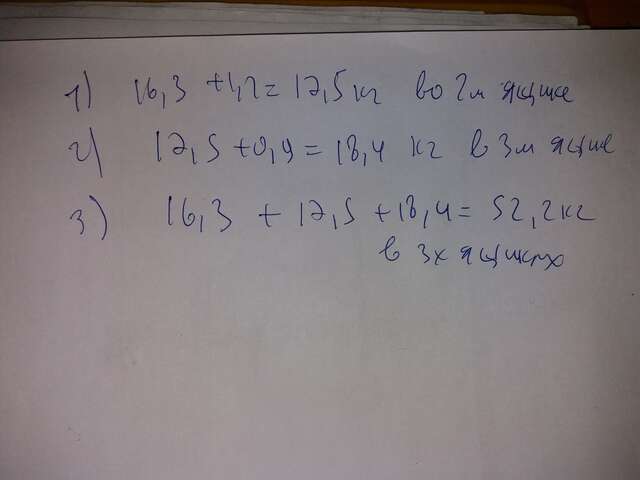 1) 16,3 + 1,2 = 17,5 кг во 2м ящике
2) 17,5 + 0,9 = 18,4 кг в 3м ящике
3) 16,3 + 17,5 + 18,4 = 52,2 кг
в 3х ящиках